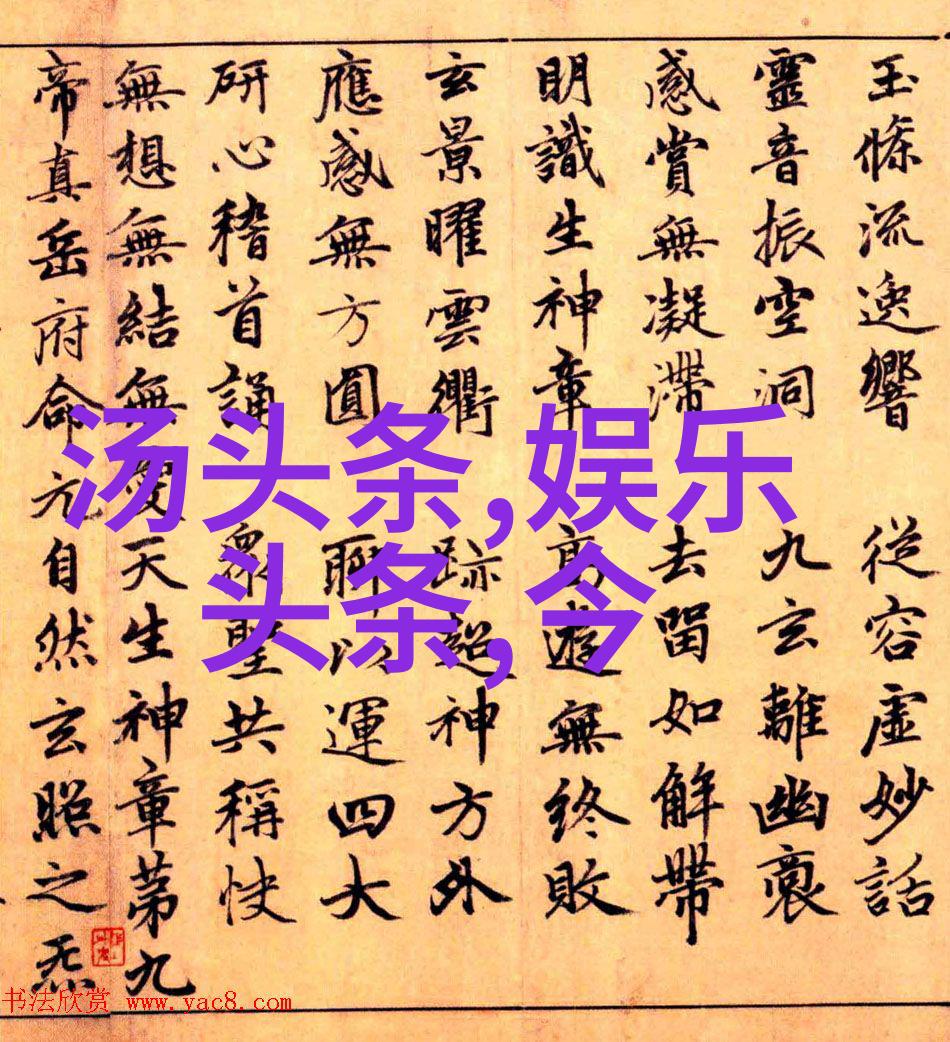 玉條流逸響 從容虛妙話
靈音振空洞 九玄離幽裔
感賞無凝滯 去留如解帶
明識生神章 高遊無終敗
玄景曜雲衢 跡超神方外
應感無方圓 聊以運四大
研心稽首誦 衆聖共稱快
無想無結無愛天生神章第九
帝真岳府命元自然玄照之炁
汤头条,娱乐
头条,今
书法欣赏 www.yac8.com